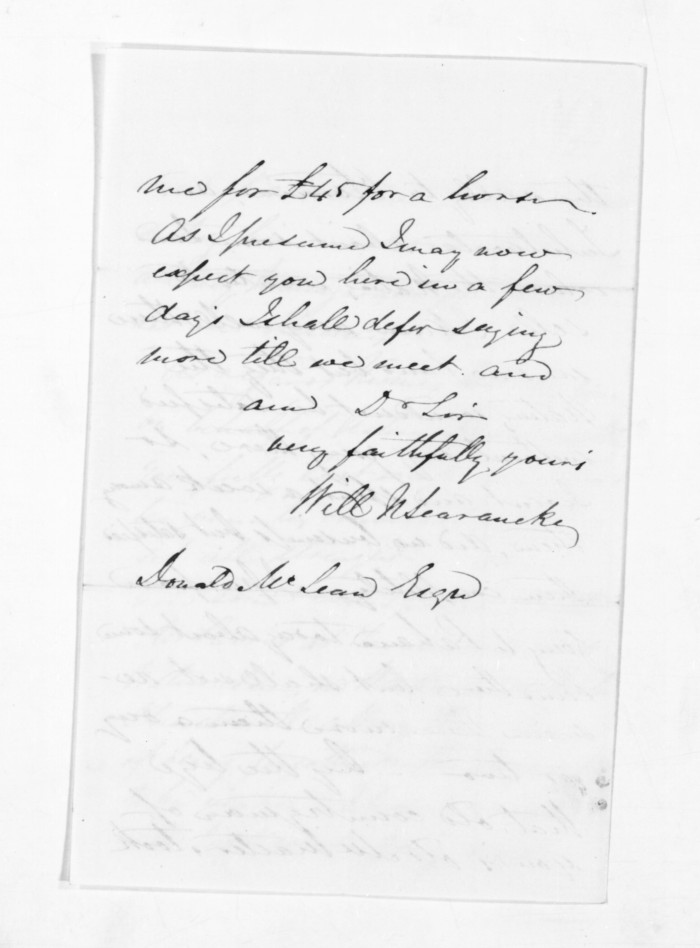 me for £45 for a horse.
As I presume I may now
expect you here in a few
days I shall defer saying
more till we meet. and
am Dr Sir
very faithfully yours
Will N Searancke
Donald McLean Esqre